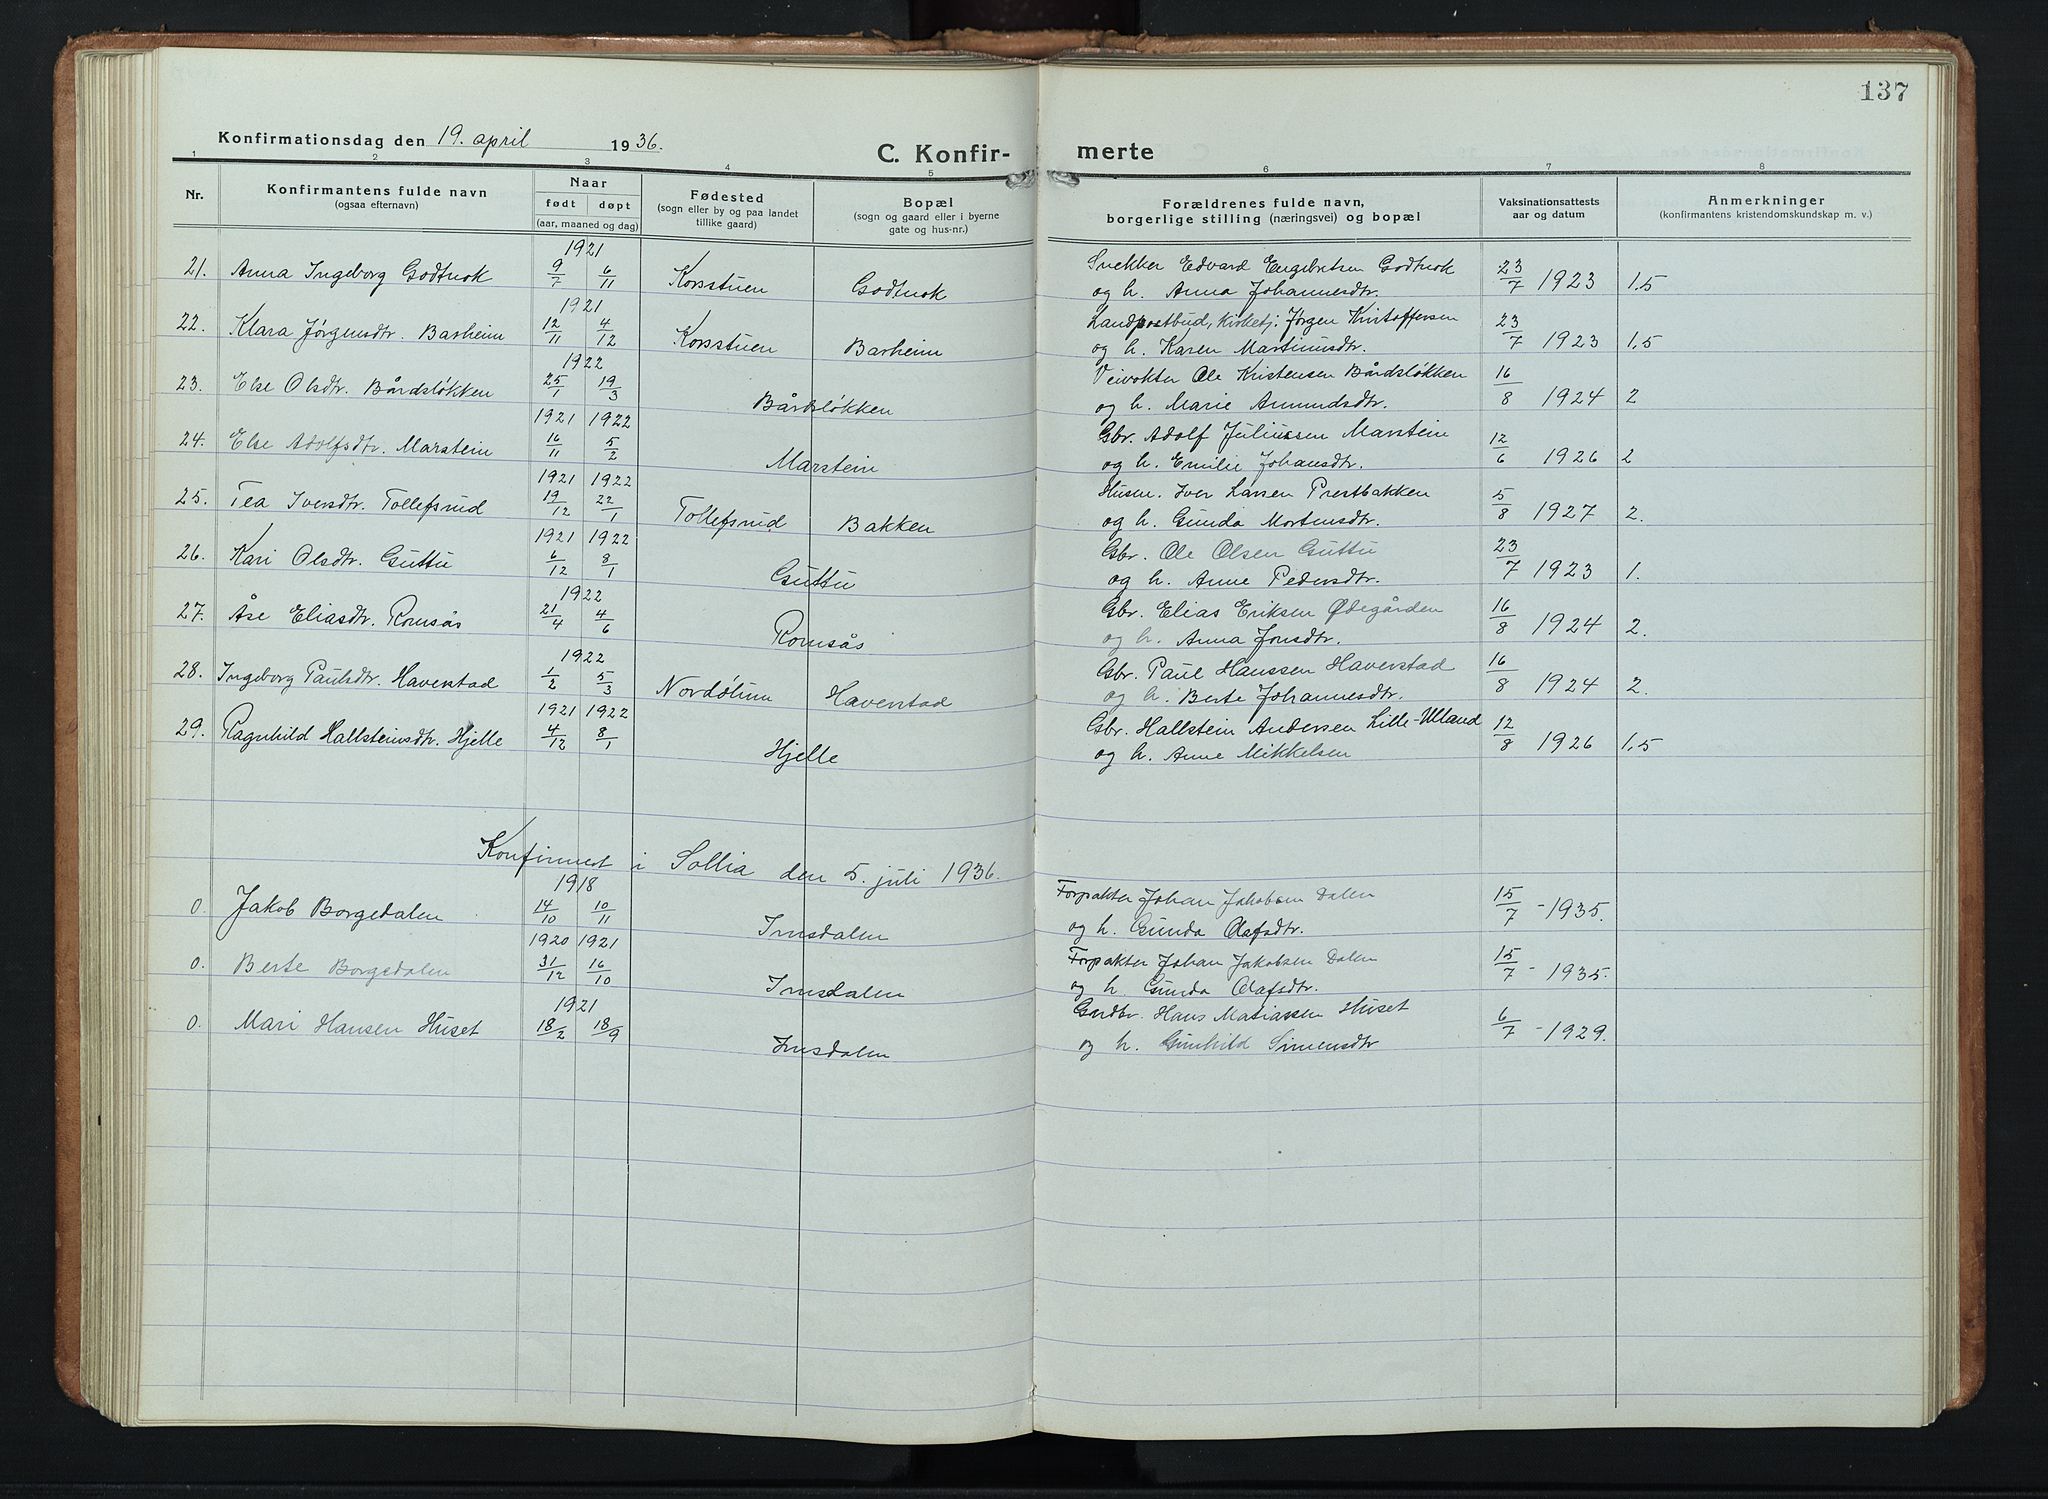 137
Konfirmationsdag den 19. april 1936.
C. Konfir- merte
1 2 3 4 5 6 7 8
Nr.
Konfirmantens fulde navn
(ogsaa efternavn)
Naar
født døpt
(aar, maaned og dag)
Fødested
(sogn eller by og paa landet
tillike gaard)
Bopæl
(sogn og gaard eller i byerne
gate og hus-nr.)
Forældrenes fulde navn,
borgerlige stilling (næringsvei) og bopæl
Vaksinationsattests
aar og datum
Anmerkninger
(konfirmantens kristendomskundskap m. v.)
1921
21. Anna Ingeborg Godtnok 9/7 6/11 Korsstuen Godtnok Snekker Edvard Engebretsen Godtnok 23/7 1923 1.5
og h. Anna Johannesdtr.
1921
22. Klara Jørgensdtr. Barheim 12/11 4/12 Korsstuen Barheim Landpostbud, Kirketj. Jørgen Kristoffersen 23/7 1923 1,5
og h. Karen Martinusdtr.
1922
23. Else Olsdtr. Bårdsløkken 25/1 19/3 Bårdsløkken Veivokter Ole Kristensen Bårdsløkken 16/8 1924 2
og h. Marie Amundsdtr.
1921 1922
24. Else Adolfsdtr. Marstein 16/11 5/2 Marstein Gbr. Adolf Juliussen Marstein 12/6 1926 2
og h. Emilie Johansdtr.
1921 1922
25. Tea Iversdtr. Tollefsrud 19/12 22/1 Tollefsrud Bakken Husm. Iver Larsen Prestbakken 5/8 1927 2.
og h. Gunda Mortensdtr.
1921 1922
26. Kari Olsdtr. Guttu 6/12 8/1 Guttu Gbr. Ole Olsen Guttu 23/7 1923 1.
og h. Anne Pedersdtr.
1922
27. Åse Eliasdtr. Romsås 21/4 4/6 Romsås Gbr. Elias Eriksen Ødegården 16/8 1924 2.
og h. Anna Jonsdtr.
1922
28. Ingeborg Paulsdtr. Haverstad 1/2 5/3 Nordølum Haverstad Gbr. Paul Hanssen Haverstad 16/8 1924 2.
og h. Berte Johannesdtr.
1921 1922
29. Ragnhild Hallsteinsdtr. Hjelle 4/12 8/1 Hjelle Gbr. Hallstein Andersen Lille-Ulland 12/8 1926 1,5
og h. Anne Mikkelsen
Konfirmert i Sollia den 5. juli 1936.
1918
0. Jakob Borgedalen 14/10 10/11 Imsdalen Forpakter Johan Jakobsen Dalen 15/7 - 1935.
og h. Gunda Olafsdtr.
1920 1921
0. Berte Borgedalen 31/12 16/10 Imsdalen Forpakter Johan Jakobsen Dalen 15/7 - 1935.
og h. Gunda Olafsdtr.
1921
0. Mari Hansen Huset 18/2 18/9 Imsdalen Gardbr. Hans Matiassen Huset 6/7 - 1929.
og h. Gunhild Simensdtr